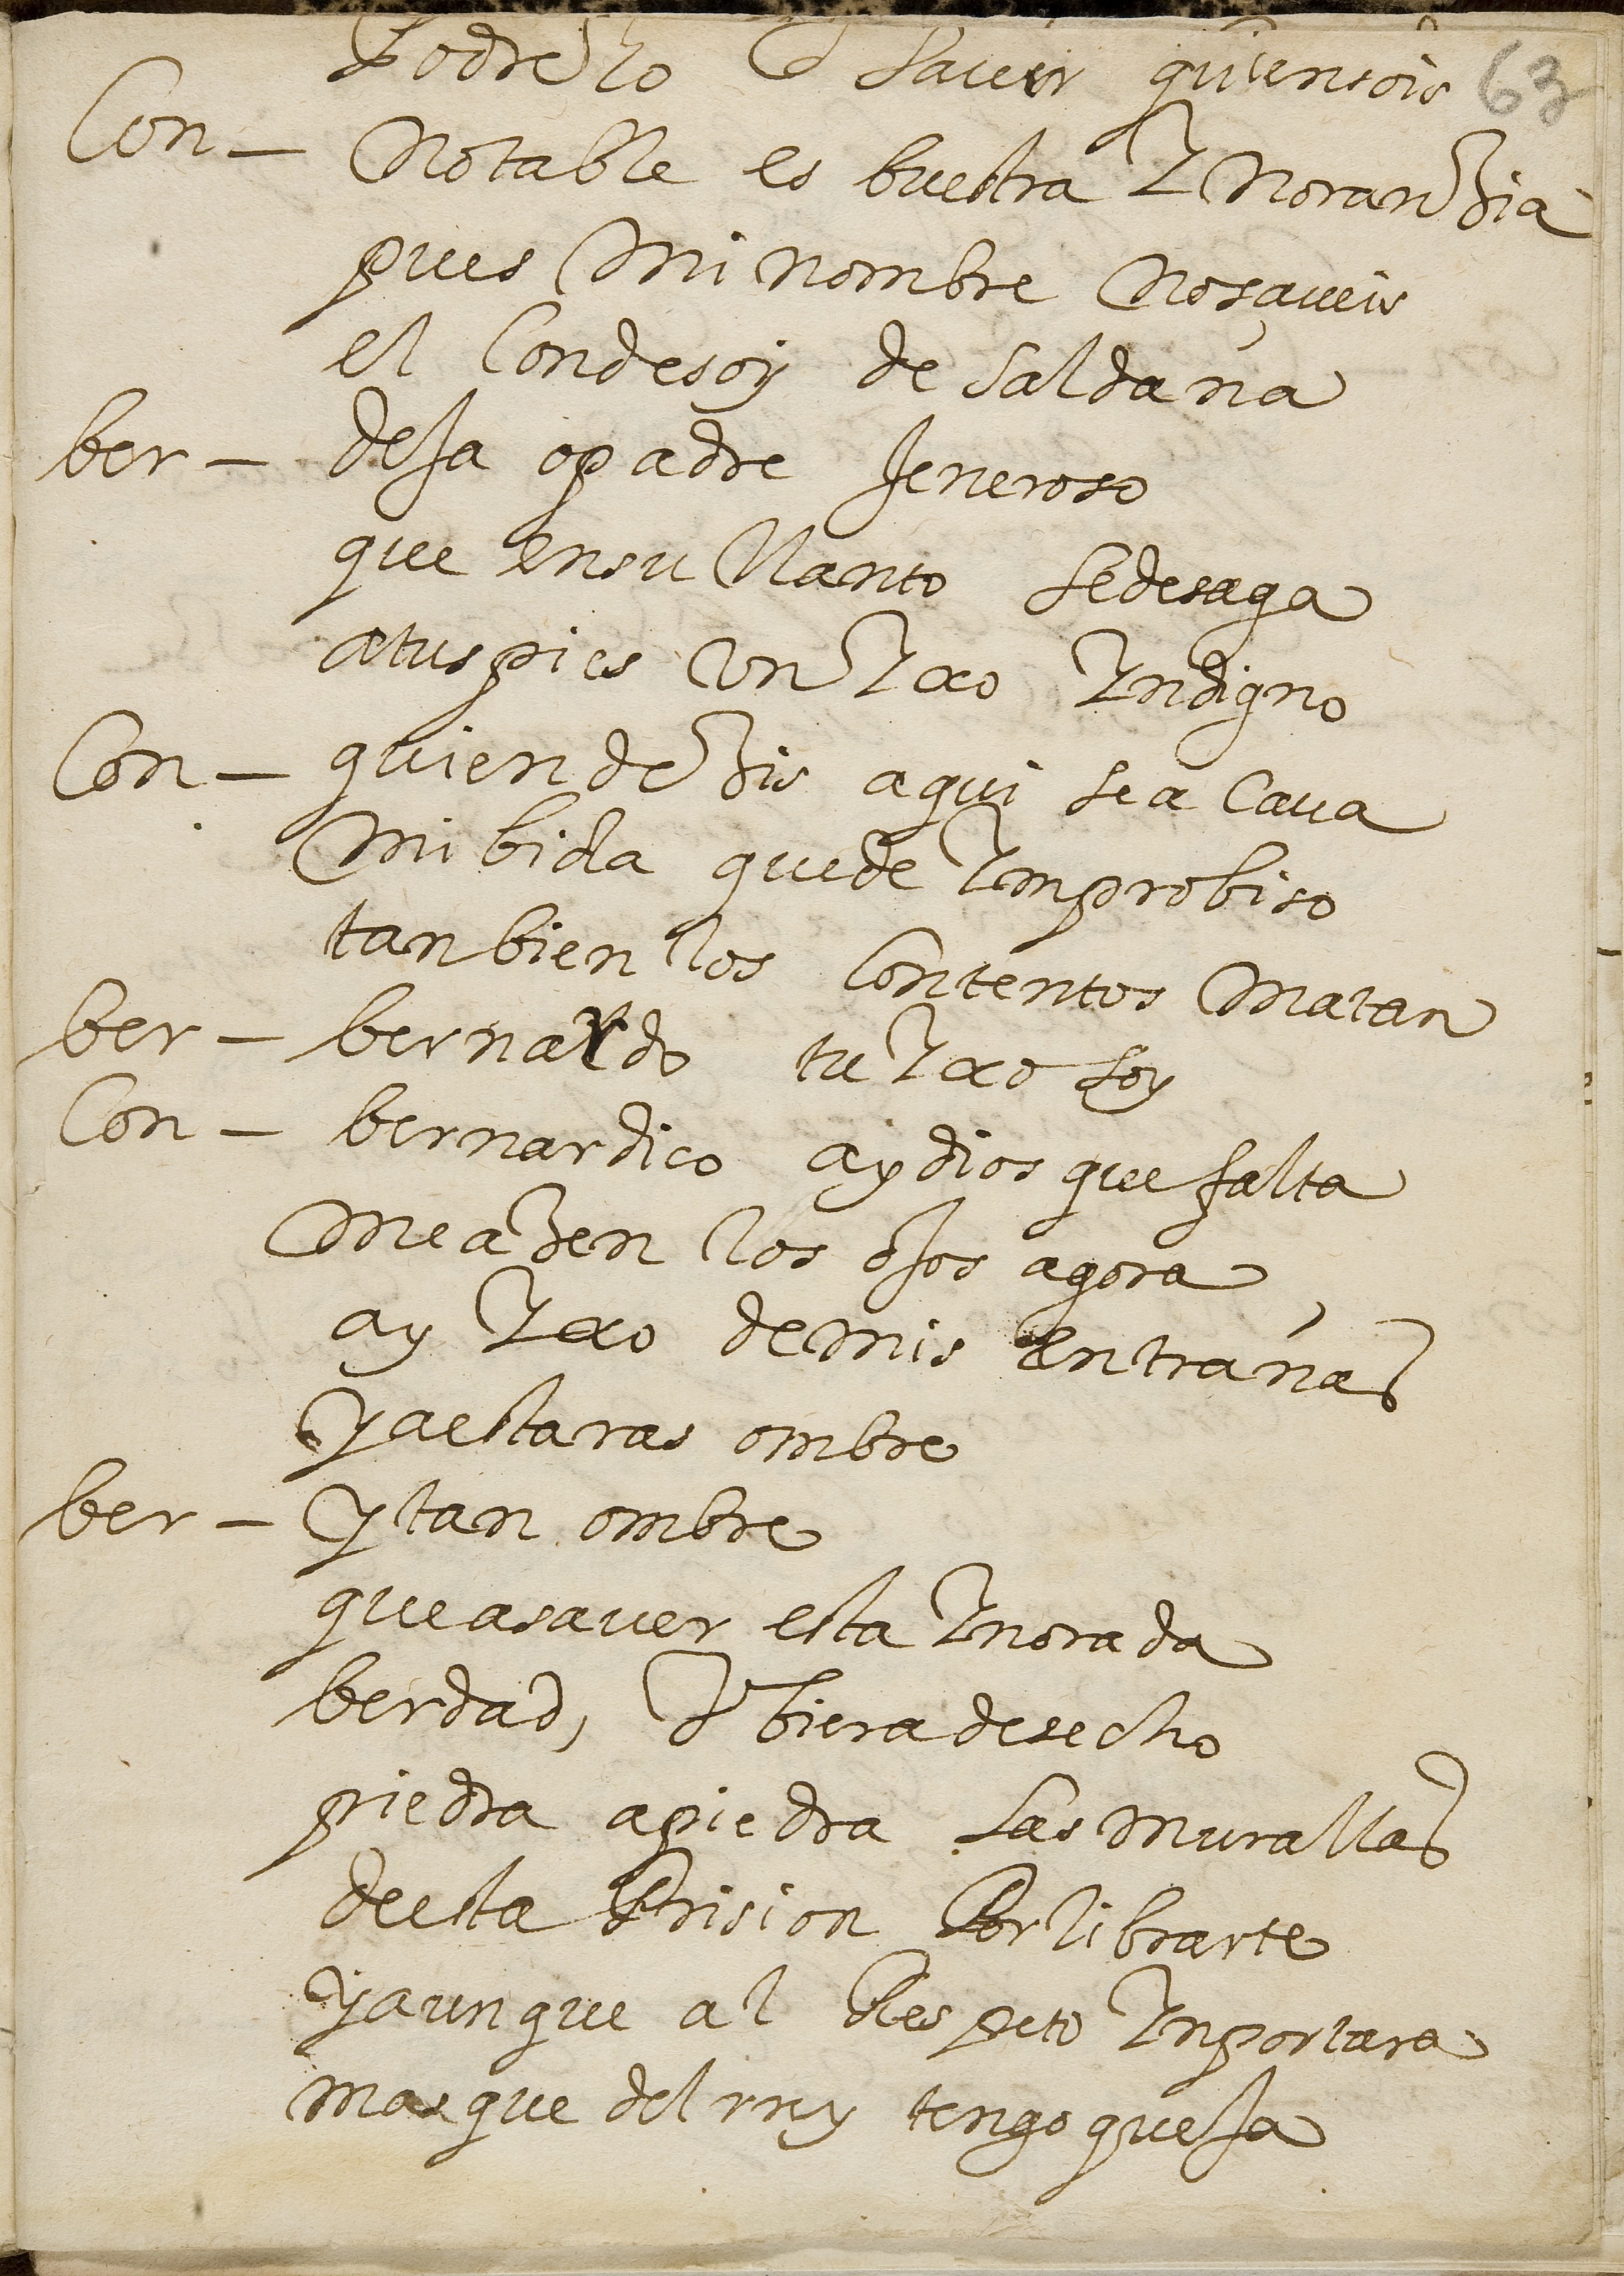 Podre lo Saver quiensois 63
Con — Notable es buestra Ynoranzia
pues mi nombre nosaueis
el Condesoy de saldaña
ber — deja opadre Jeneroso
que ensu llanto sedesaga
atuspies un Yxo Yndigno
Con — quien dezis aqui se a Caua
mi bida quede Ymprobiso
tanbien los Contentos matan
ber — bernardo tu Yxo soy
Con — bernardico ay dios que falta
me azen los ojos agora
ay Yxo demis entrañas
yaestaras ombre
ber — ytan ombre
queasauer esta Ynorada
berdad, Vbiera desecho
piedra apiedra las murallas
deesta Prision Por librarte
yaunque al Respeto Ynportara
mas que del rrey tengo queja